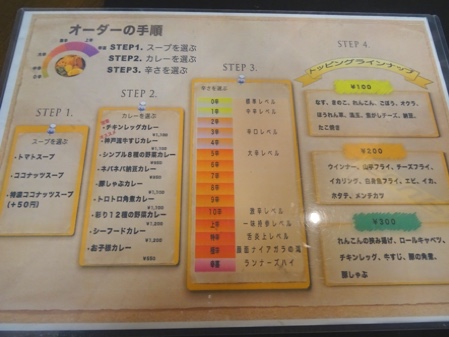 オーダーの手順
STEP1. スープを選ぶ
STEP2. カレーを選ぶ
STEP3. 辛さを選ぶ
STEP 1.
スープを選ぶ
・トマトスープ
・ココナッツスープ
・特濃ココナッツスープ
(+50円)
STEP 2.
カレーを選ぶ
・チキンレッグカレー
¥1,100
・神戸流牛すじカレー
・シンプル8種の野菜カレー
・ネバネバ納豆カレー
・豚しゃぶカレー
・トロトロ角煮カレー
・彩り12種の野菜カレー
・シーフードカレー
・お子様カレー
STEP 3.
辛さを選ぶ
0辛 標準レベル
1辛 中辛レベル
2辛
3辛 辛口レベル
4辛
5辛 大辛レベル
6辛
7辛
8辛
9辛
10辛 激辛レベル
ランナーズハイ
STEP 4.
トッピングラインナップ
¥100
なす、きのこ、れんこん、ごぼう、オクラ、
ほうれん草、温玉、揚げチーズ、納豆、
たこ焼き
¥200
ウインナー、山芋フライ、チーズフライ、
イカリング、白身魚フライ、エビ、イカ、
ホタテ、メンチカツ
¥300
れんこんの挟み揚げ、ロールキャベツ、
チキンレッグ、牛すじ、豚の角煮、
豚しゃぶ